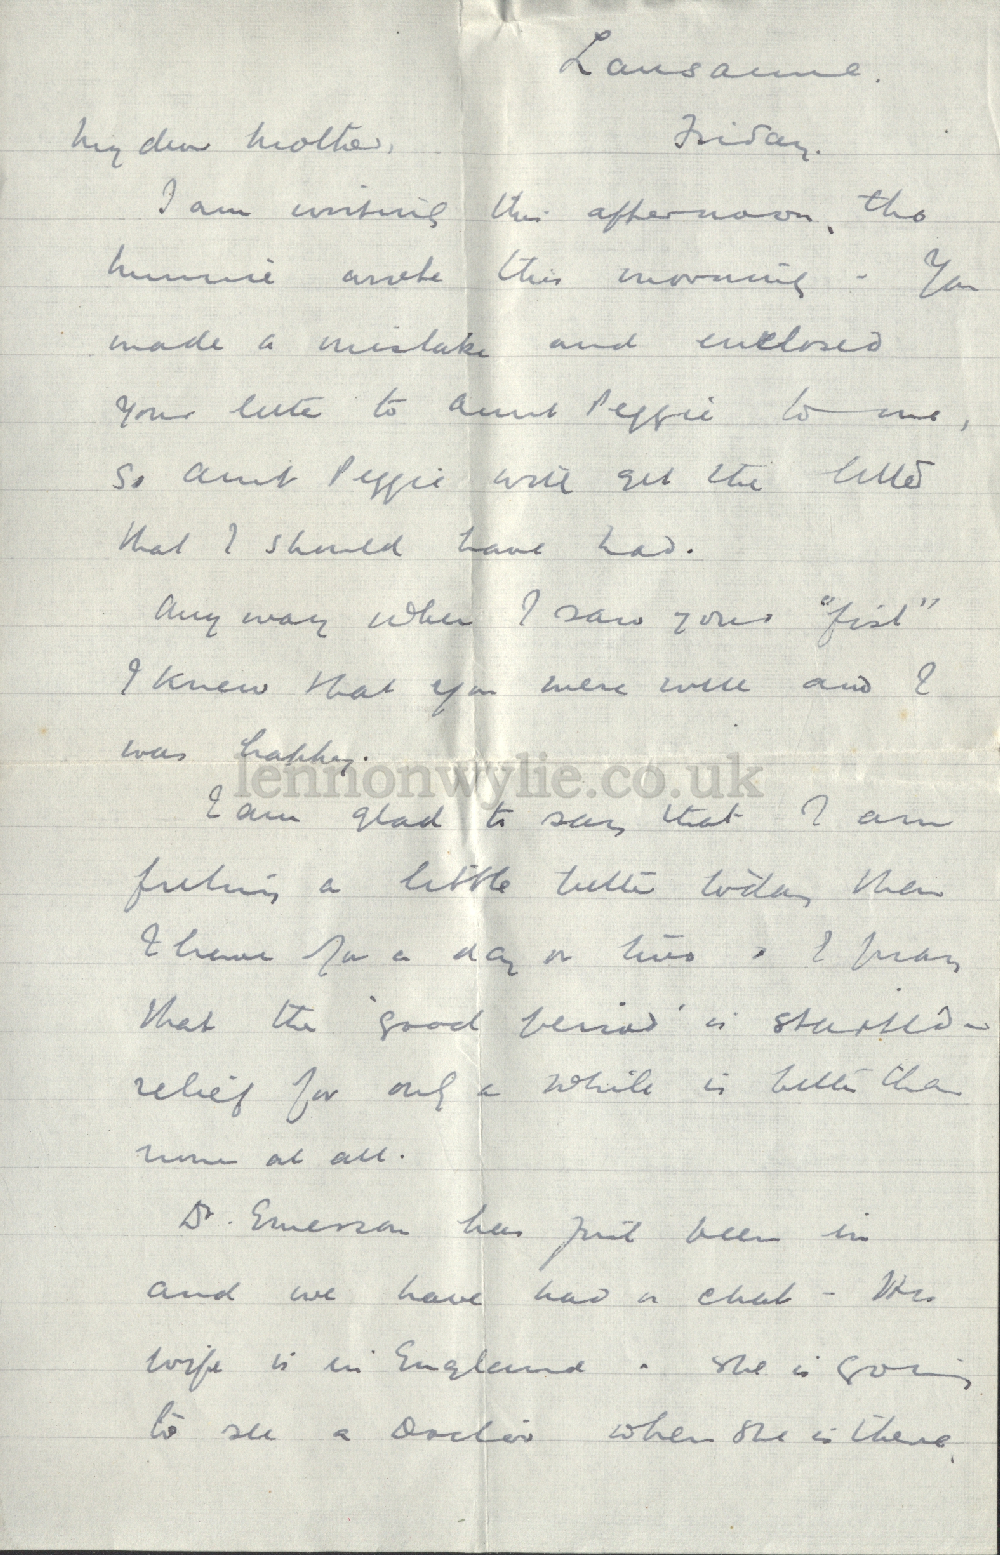 Lausanne.
Friday.
My dear Mother,
I am writing this afternoon, tho
Minnie wrote this morning - You
made a mistake and enclosed
your letter to Aunt Peggie to me,
so Aunt Peggie will get the letter
that I should have had.
Anyway when I saw your "fist"
I knew that you were well and I
was happy.
lennonwylie.co.uk
I am glad to say that I am
feeling a little better today than
I have for a day or two. I pray
that the 'good period' is started -
relief for only a while is better than
none at all.
Dr. Emerson has just been in
and we have had a chat - His
wife is in England. She is going
to see a Doctor when she is there,